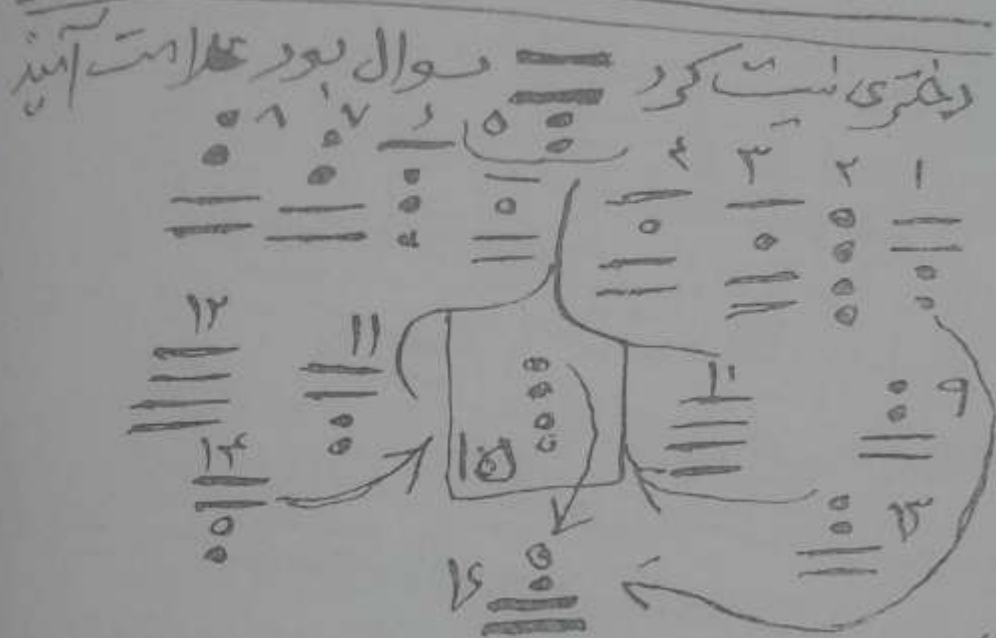 دختری نیت کرد سوال بود علامت آمیز
۱ ۲ ۳ ۴ ۵ ۶ ۷ ۸
۹ ۱۰ ۱۱ ۱۲
۱۳ ۱۴ ۱۵
۱۶